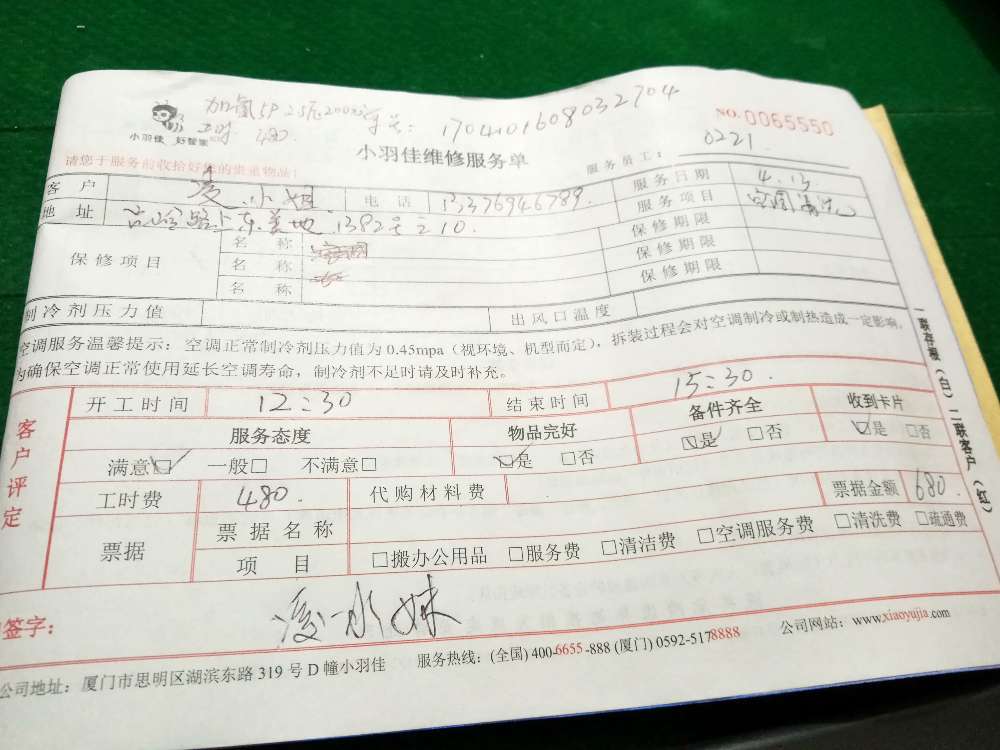 加氟5P 2.5压200元 单号: 170401608032704
工时 480
小羽佳 好管家
NO.0065550
小羽佳维修服务单
服务员工: 0221
请您于服务前收拾好您的贵重物品!
客户 凌小姐 电话 13376946789 服务日期 4.13
地址 1382号 210. 服务项目 空调清洗
保修项目 名称 保修期限
名称 保修期限
名称 保修期限
制冷剂压力值 出风口温度
空调服务温馨提示: 空调正常制冷剂压力值为 0.45mpa (视环境、机型而定), 拆装过程会对空调制冷或制热造成一定影响,
为确保空调正常使用延长空调寿命, 制冷剂不足时请及时补充。
客户评定
开工时间 12:30 结束时间 15:30.
服务态度 物品完好 备件齐全 收到卡片
满意☑ 一般□ 不满意□ ☑是 □否 ☑是 □否 ☑是 □否
工时费 480. 代购材料费 票据金额 680.
票据 票据名称
项目 □搬办公用品 □服务费 □清洁费 □空调服务费 □清洗费 □疏通费
签字: 凌水妹
公司地址: 厦门市思明区湖滨东路 319 号 D 幢小羽佳 服务热线: (全国) 400-6655-888 (厦门) 0592-5178888 公司网站: www.xiaoyujia.com
一联存根(白) 二联客户(红)